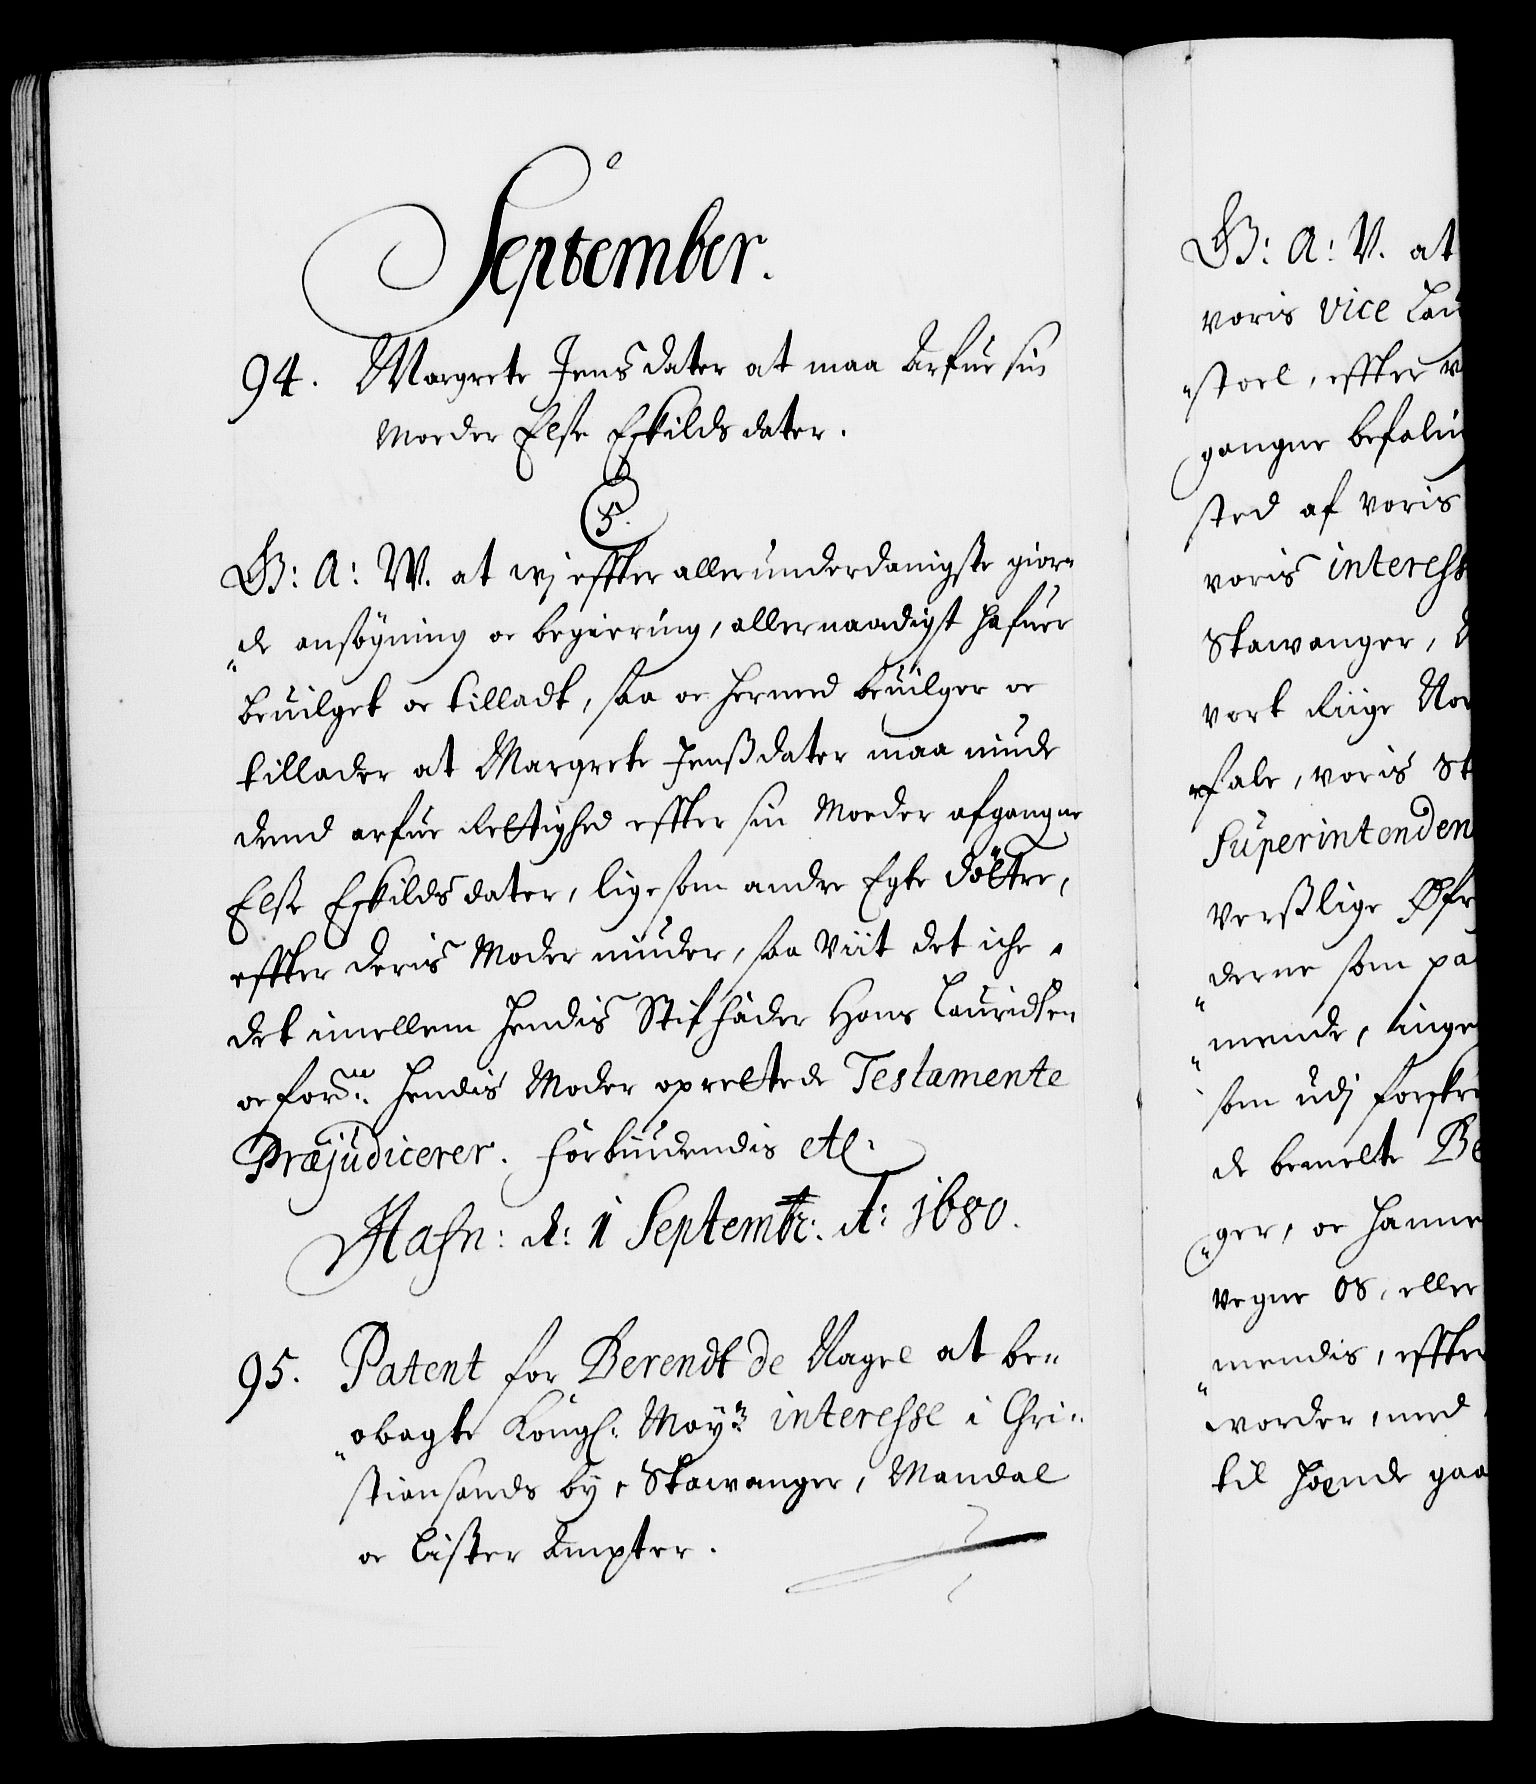 September.
94. Margrete Jens dater at maa Arfue sin
Moder Else Eskilds dater.
5.
G: A: W. at wj effter allerunderdanigste gior„
„de ansøgning oc begiering, allernaadigst hafuer
beuilget oc tilladt, saa oc hermed beuilger oc
tillader at Margrete Jenßdater maa niude
dend arfue Rettighed effter sin Moeder afgangne
Else Eskilds dater, lige som andre Egte döttre,
effter deris Moder niuder, saa Viit det iche
det imellem hendis Stif fader Hans Lauridsen
oc for.ne hendis Moder oprettede Testamente
Præjudicerer. Forbiudendis etc.
Hafn: d: 1 Septembr: A: 1680.
95. Patent for Berendt de Nagel at be„
„obagte Kongl: May.ts interesse i Chri„
stiansands by, Stawanger, Mandal
oc Lister Ampter.
G: A: V. at
voris vice
„stoel, effter
gangne befaling
sted af voris
voris interess
Stawanger,
vort Riige Nor
„fale, voris St
Superintenden
Verßlige Øfr
„derne som pa
„mende, inge
som udj forskre
de bemelte Be
„ger, oc hanne
Vegne os, eller
„mendis, effter
worder, med
til hænde gaa